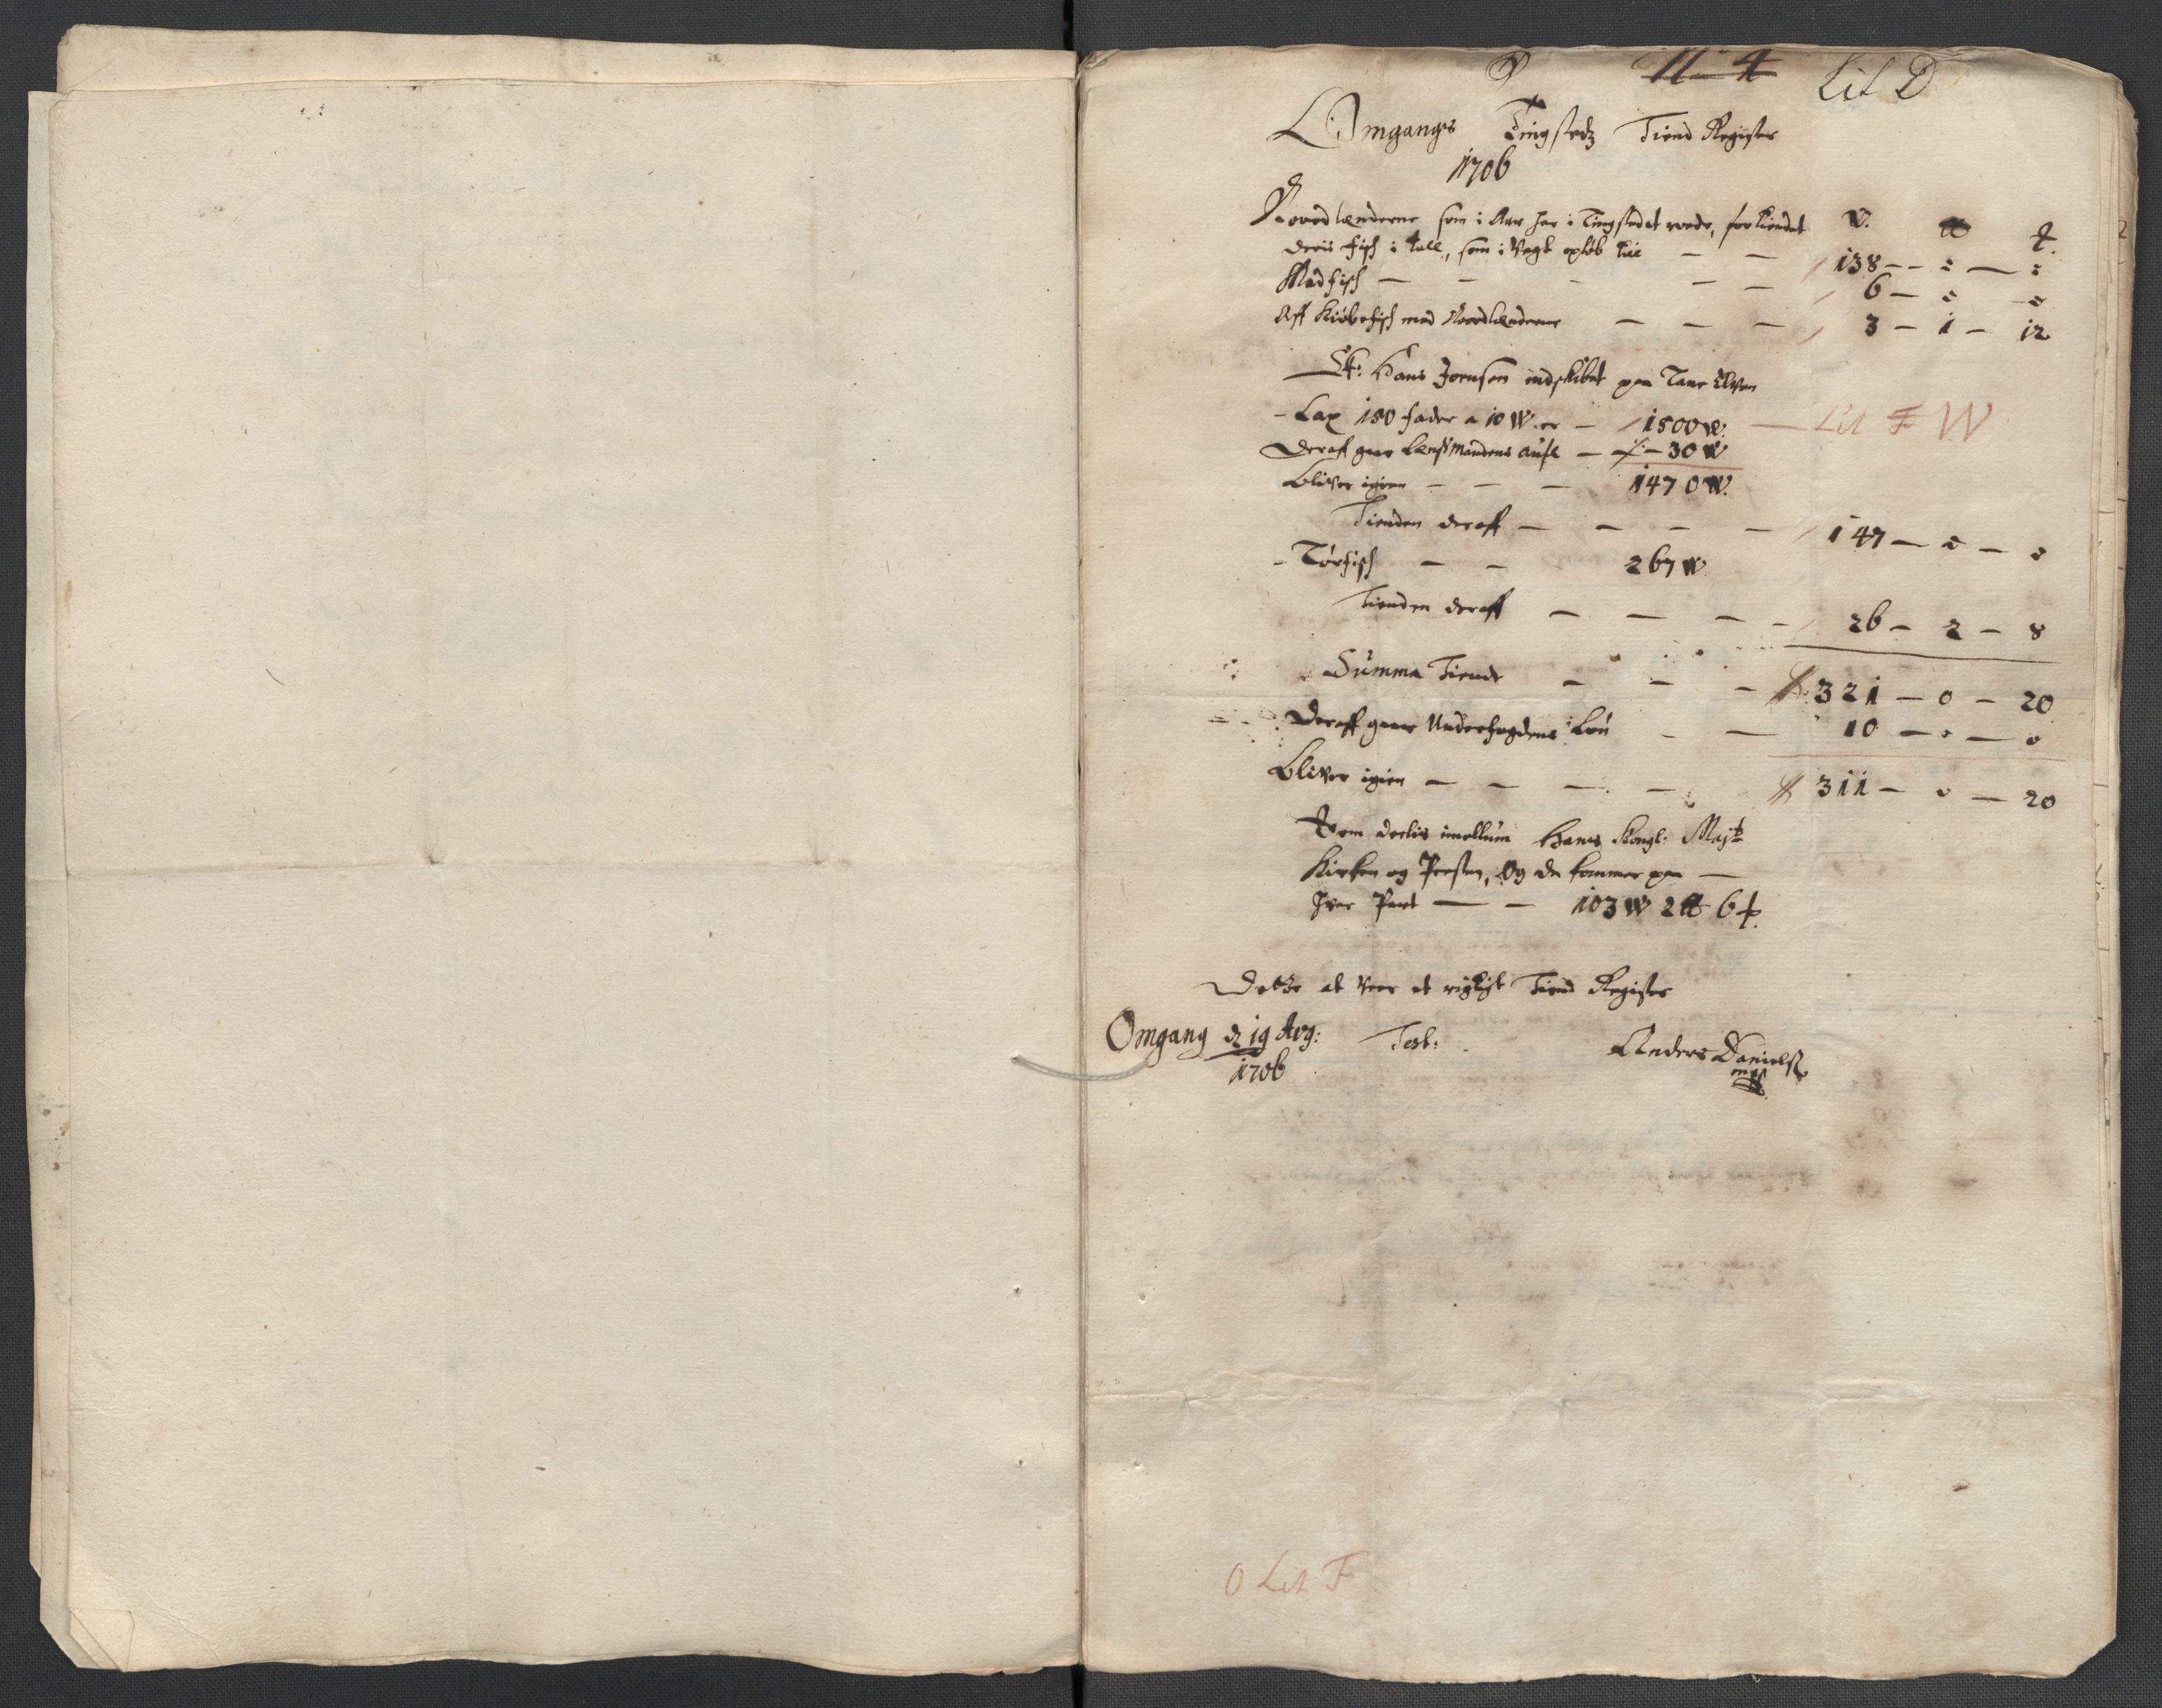 N 4 Lit D
Omgangs Tingstedz Tiend Register
1706
Nordlænderne som i Aar her i Tingstedet roede, fortiendet W.
deris fisch i tall, som i Vegt opløb till — — 138 — : — :
Madfisch — — — — 6 — : — :
Aff Kiøbefisch med Nordlænderne — — — 3 — 1 — 12
Hans Jonsen indskibet paa Tane Elven
- Lax 150 fader a 10 W. er — 1500 W: — Lit F W
Deraf gaar Lensmandens — — 30 W
Bliver igien — — — 1470 W.
Tienden deraff — — — — 147 — : — :
- Tørfisch — — 267 W
Tienden deraff — — — — 26 — 2 — 8
Summa Tiende — — — 321 — 0 — 20
Deraff gaar Underfogdens Løn — — 10 — : — :
Bliver igien — — — — 311 — : — 20
Som deelis imellum Hans Kongl: Majts
Kirken og Presten, Og da kommer paa —
hver Part — — 103 W 2 6
Dette at vere et rigtigt Tiend Register
Omgang d 19 Avg: Test: Anders Danielss
1706 mpp
O Lit F